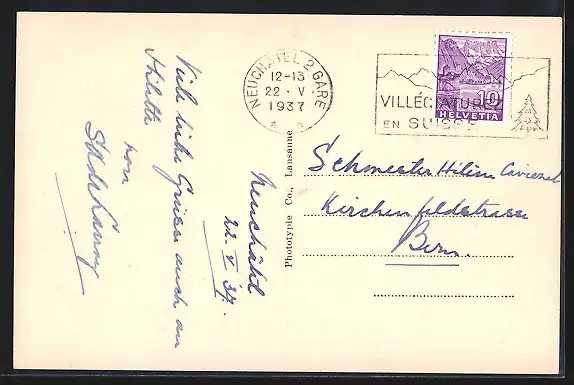 NEUCHATEL 2 GARE
12-13
22 · V
1937
VILLÉGIATURE
EN SUISSE
10
HELVETIA
Viele liebe Grüsse auch an
von
Neuchâtel
22. V. 37.
Phototypie Co., Lausanne
Schwester
Kirchenfeldstrasse
Bern.